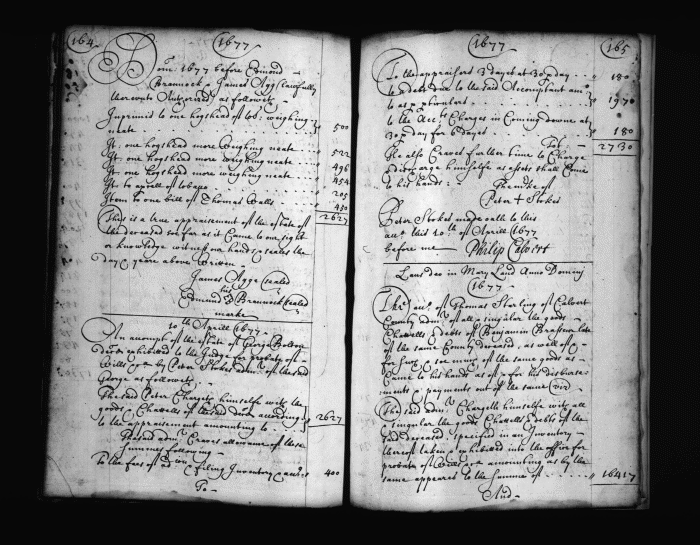 164
1677
June 1677 before Edmond
Brannock & James Agg (lawfully
thereunto Authorized) as followeth
Inprimis to one hogshead of tob: weighing
neate 500
It: one hogshead more weighing neate 522
It: one hogshead more weighing neate 496
It: one hogshead more weighing neate 454
It: to a psell of tobacco 205
Item to one bill of Thomas Walls 450
2627
This is a true appraisement of the estate of
the deceased soe far as it Came to our sight
or knowledge witness our hands & seales the
day & yeare above written
James Agge sealed
his
Edmund B Brannock sealed
marke
10th Aprill 1677
An accompt of the estate of George Bolton
decd exhibited to the Judge for probate of
Wills &c by Peter Stokes admr of the said
George as followeth
The said Peter Chargeth himselfe with the
goods & Chattells of the said decd according
to the appraisement amounting to 2627
The said admr Craves allowance of these
Summes following
To the fees of & filing Inventory & 400
To
1677
165
To the appraisers 3 dayes at 30 p day 180
to debts due to the said Accomptant
1970
to the Accts Charges in Coming downe at
30 p day for 6 dayes 180
2730
He also Craves further time to Charge
& discharge himselfe as assets shall Come
to his hands
Peter + Stokes
Peter Stokes made oath to this
acct this 10th of Aprill 1677
before me Philip Calvert
Laus deo in Mary Land Anno Dominj
1677
The of Thomas Sterling of Calvert
County admr of all & singular the goods
Chattells & debts of Benjamin Brasseur late
of the same County deceased, as well of &
for such & soe many of the same goods as
Came to his hands as of & for his disburse-
ments & payments out of the same
The said admr Chargeth himselfe with all
& singular the goods Chattells & debts of the
said deceased specified in an Inventory
thereof taken & exhibited into the office for
probate of Wills &c amounting as by the
same appeares to the summe of 16417
And